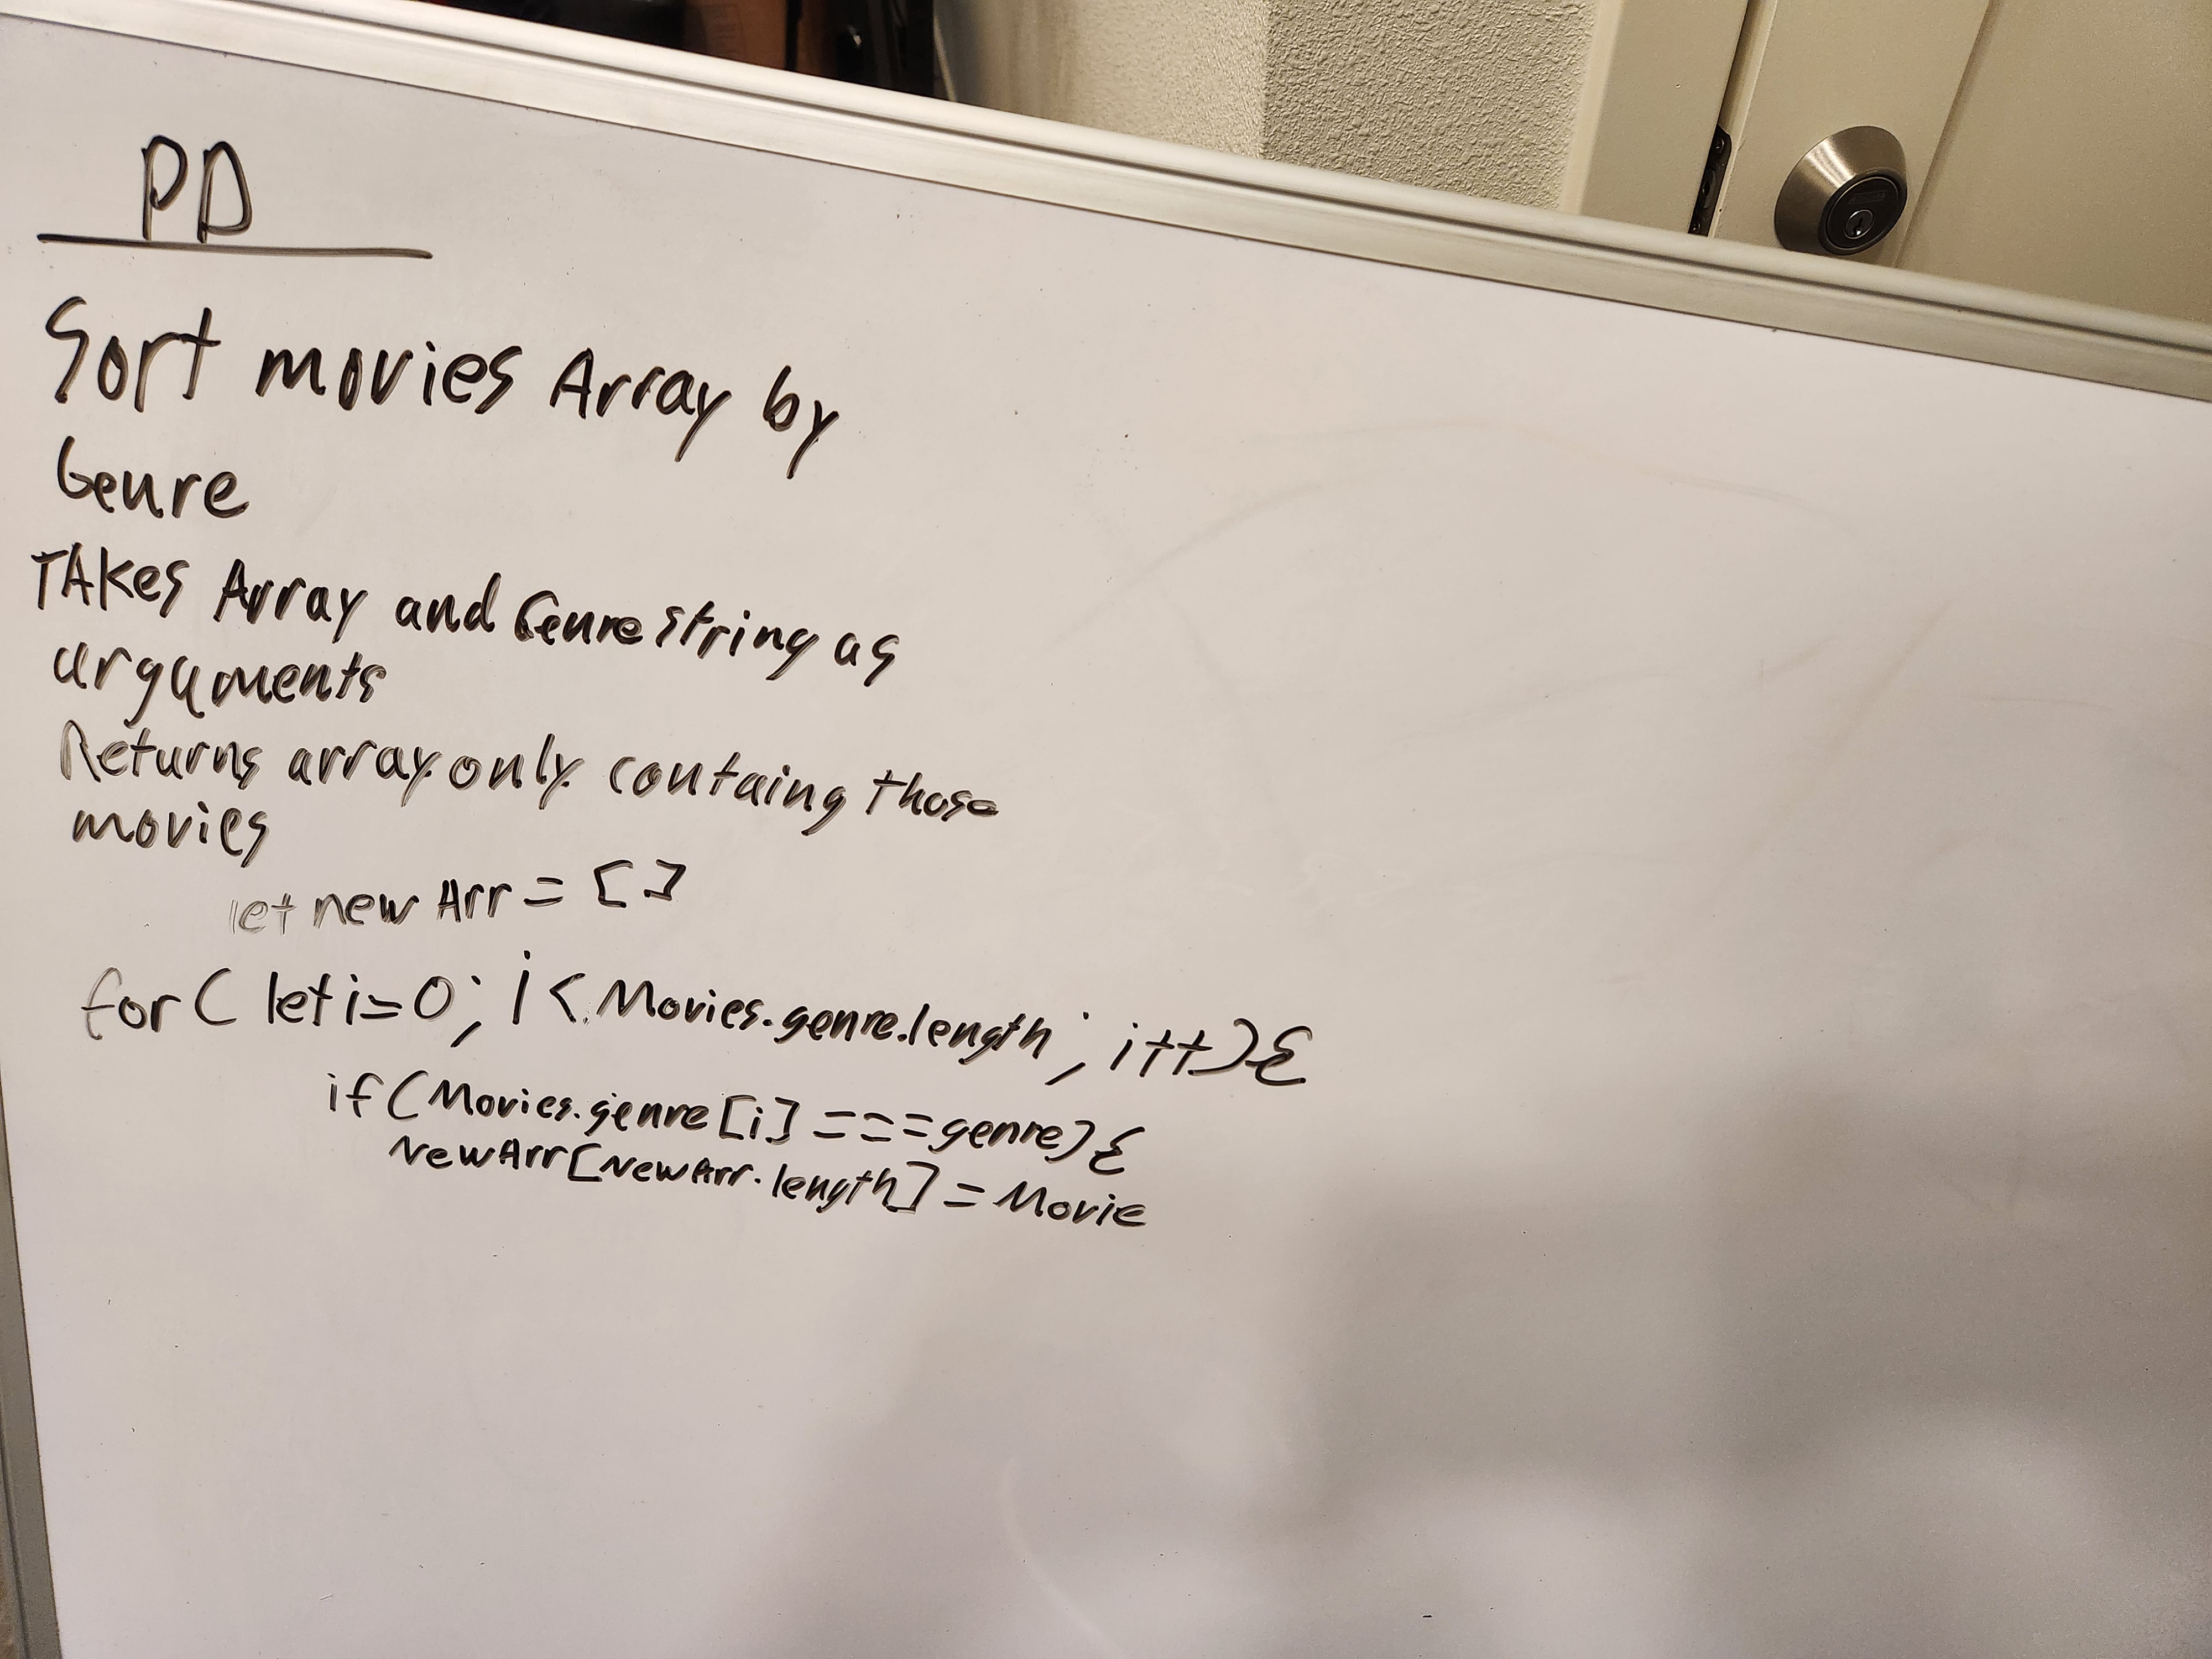 PD
Sort movies Array by
Genre
TAKes Array and Genre string as
arguments
Returns array only containg those
movies
let new Arr = []
for ( let i=0; i < Movies.genre.length; i++){
if (Movies.genre[i] === genre){
NewArr[NewArr.length] = Movie